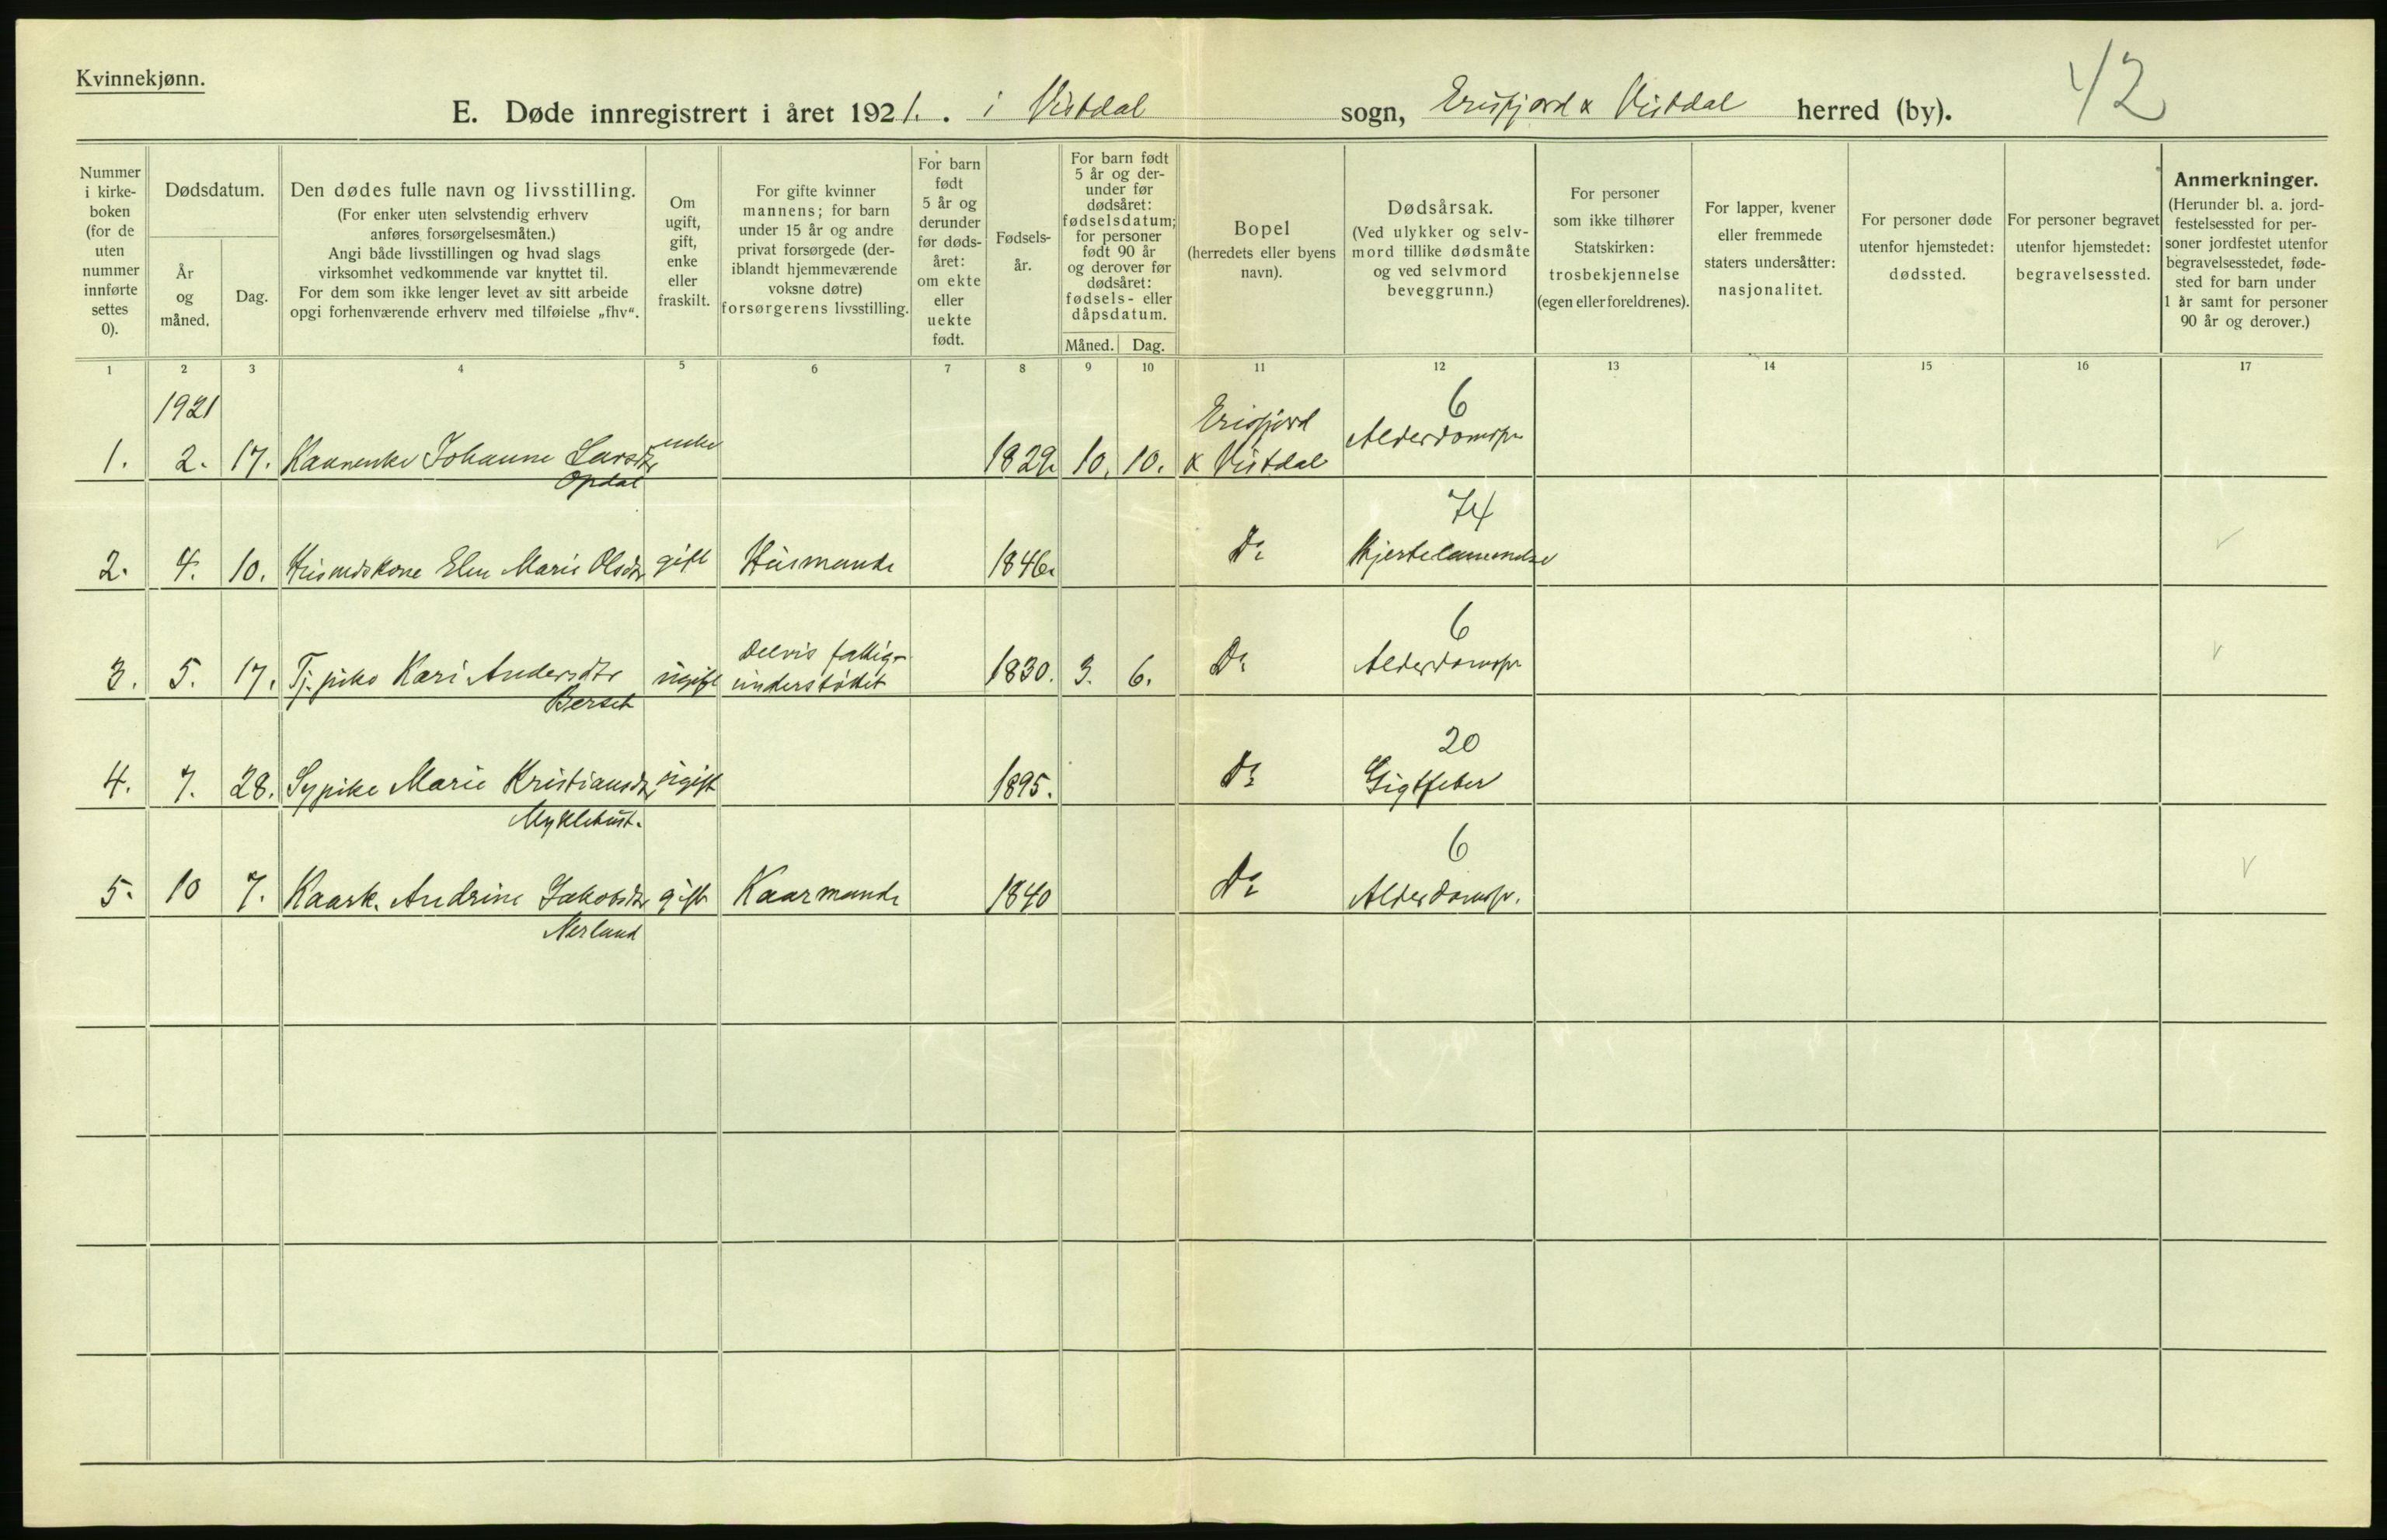 Kvinnekjønn.
42
E. Døde innregistrert i året 1921. i Vistdal sogn, Erisfjord & Vistdal herred (by).
Nummer i kirke- boken (for de uten nummer innførte settes 0).
Dødsdatum.
År og måned.
Dag.
Den dødes fulle navn og livsstilling.
(For enker uten selvstendig erhverv
anføres forsørgelsesmåten.)
Angi både livsstillingen og hvad slags
virksomhet vedkommende var knyttet til.
For dem som ikke lenger levet av sitt arbeide
opgi forhenværende erhverv med tilføielse „fhv“.
Om ugift, gift, enke eller fraskilt.
For gifte kvinner
mannens; for barn
under 15 år og andre
privat forsørgede (der-
iblandt hjemmeværende
voksne døtre)
forsørgerens livsstilling.
For barn
født
5 år og
derunder
før døds-
året:
om ekte
eller
uekte
født.
Fødsels-
år.
For barn født
5 år og der-
under før
dødsåret:
fødselsdatum;
for personer
født 90 år
og derover før
dødsåret:
fødsels- eller
dåpsdatum.
Måned. Dag.
Bopel
(herredets eller byens
navn).
Dødsårsak.
(Ved ulykker og selv-
mord tillike dødsmåte
og ved selvmord
beveggrunn.)
For personer
som ikke tilhører
Statskirken:
trosbekjennelse
(egen eller foreldrenes).
For lapper, kvener
eller fremmede
staters undersåtter:
nasjonalitet.
For personer døde
utenfor hjemstedet:
dødssted.
For personer begravet
utenfor hjemstedet:
begravelsessted.
Anmerkninger.
(Herunder bl. a. jord-
festelsessted for per-
soner jordfestet utenfor
begravelsesstedet, føde-
sted for barn under
1 år samt for personer
90 år og derover.)
1 2 3 4 5 6 7 8 9 10 11 12 13 14 15 16 17
1921 Erisfjord 6
1. 2. 17. Kaarenke Johanne Larsdtr enke 1829. 10. 10. & Vistdal Alderdomssv
Opdal
74
2. 4. 10. Husmdskone Elen Marie Olsdtr gift Husmands 1846. Do Hjertelammelse
Delvis fattig- 6
3. 5. 17. Tj. pike Kari Andersdtr ugift understøttet 1830. 3. 6. Do Alderdomssv
Berset
20
4. 7. 28. Sypike Marie Kristiansdtr ugift 1895. Do Gigtfeber
Myklebust.
6
5. 10 7. Kaark. Andrine Jakobsdtr gift Kaarmands 1840 Do Alderdomssv.
Nerland